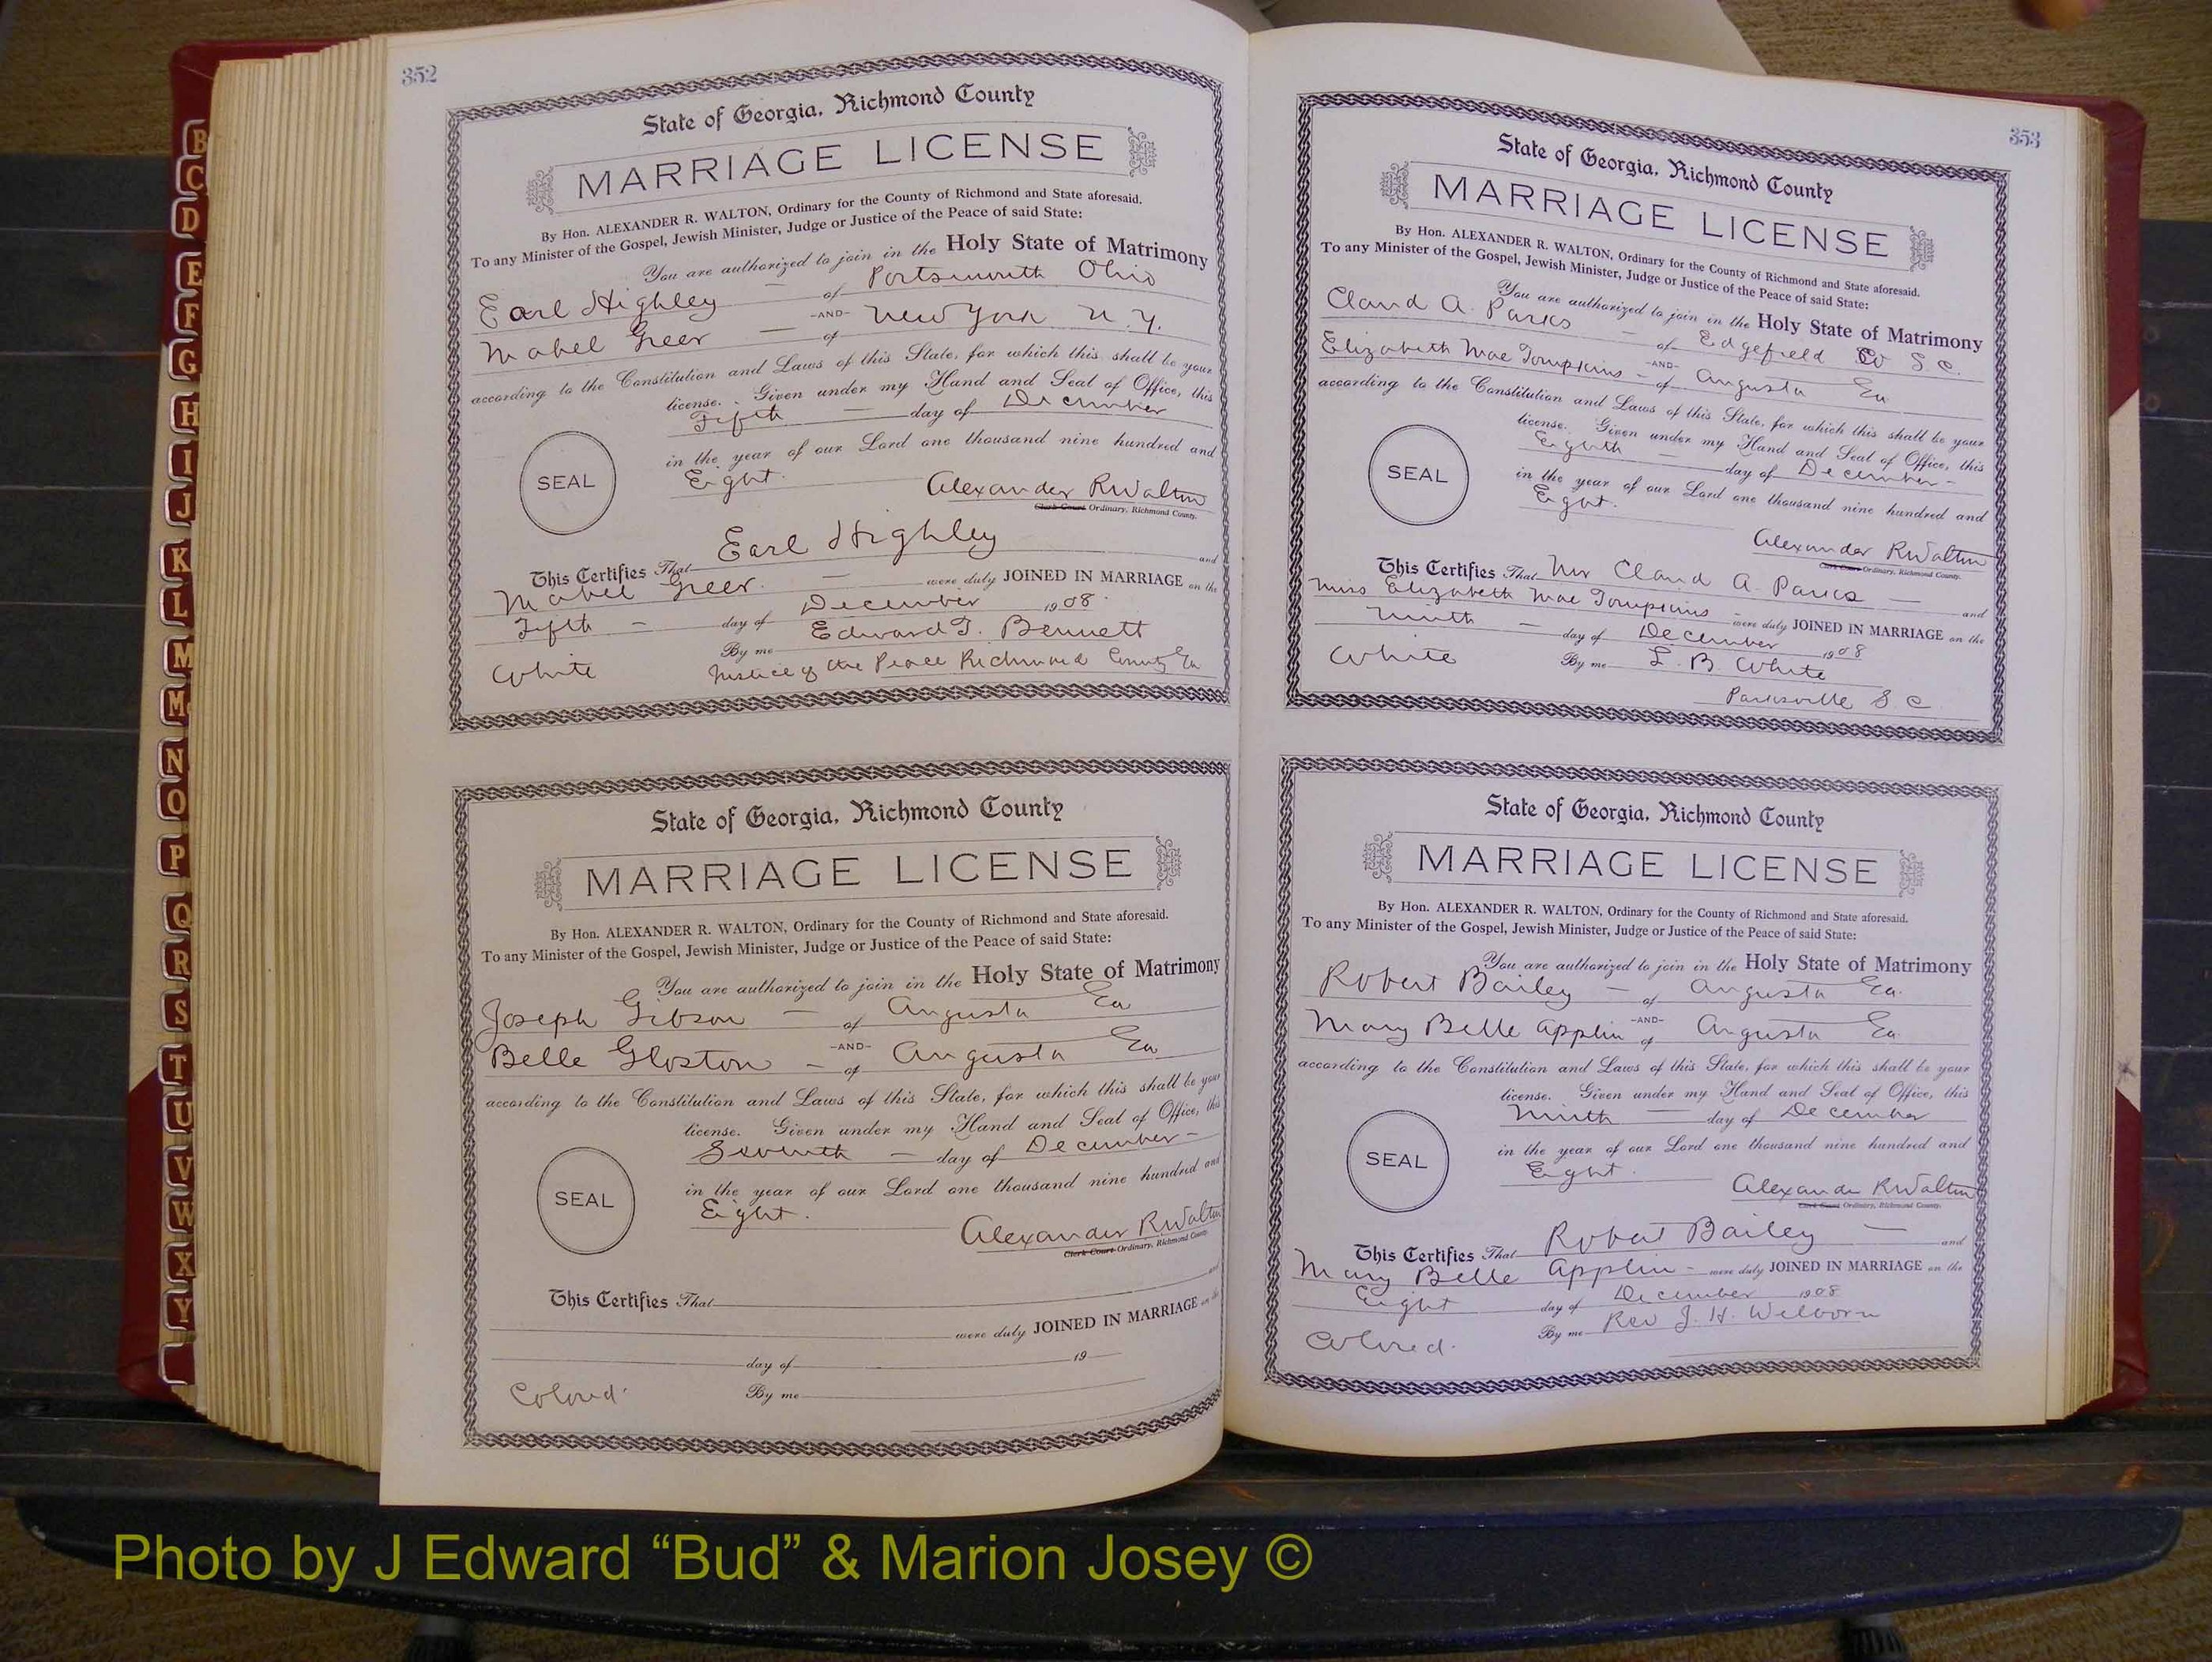 B
C
D
E
F
G
H
I
J
K
L
M
Mc
N
O
P
Q
R
S
T
U
V
W
X
Y
352
State of Georgia, Richmond County
MARRIAGE LICENSE
By Hon. ALEXANDER R. WALTON, Ordinary for the County of Richmond and State aforesaid.
To any Minister of the Gospel, Jewish Minister, Judge or Justice of the Peace of said State:
You are authorized to join in the Holy State of Matrimony
Earl Highley — of Portsmouth Ohio
-AND-
Mabel Greer — of New York N.Y.
according to the Constitution and Laws of this State, for which this shall be your
license. Given under my Hand and Seal of Office, this
Fifth — day of December
in the year of our Lord one thousand nine hundred and
Eight.
SEAL
Alexander R Walton
Clerk Court Ordinary, Richmond County.
This Certifies That Earl Highley and
Mabel Greer. — were duly JOINED IN MARRIAGE on the
Fifth — day of December 1908.
By me Edward T. Bennett
White Justice of the Peace Richmond County Ga
State of Georgia, Richmond County
MARRIAGE LICENSE
By Hon. ALEXANDER R. WALTON, Ordinary for the County of Richmond and State aforesaid.
To any Minister of the Gospel, Jewish Minister, Judge or Justice of the Peace of said State:
You are authorized to join in the Holy State of Matrimony
Joseph Gibson — of Augusta Ga
-AND-
Belle Gloston — of Augusta Ga
according to the Constitution and Laws of this State, for which this shall be your
license. Given under my Hand and Seal of Office, this
Seventh — day of December —
in the year of our Lord one thousand nine hundred and
Eight.
SEAL
Alexander R Walton
Clerk Court Ordinary, Richmond County
This Certifies That and
were duly JOINED IN MARRIAGE on the
day of 19
Colored. By me
353
State of Georgia, Richmond County
MARRIAGE LICENSE
By Hon. ALEXANDER R. WALTON, Ordinary for the County of Richmond and State aforesaid.
To any Minister of the Gospel, Jewish Minister, Judge or Justice of the Peace of said State:
You are authorized to join in the Holy State of Matrimony
Claud A. Parks — of Edgefield Co S.C.
-AND-
Elizabeth Mae Tompkins — of Augusta Ga
according to the Constitution and Laws of this State, for which this shall be your
license. Given under my Hand and Seal of Office, this
Eighth — day of December —
in the year of our Lord one thousand nine hundred and
Eight.
SEAL
Alexander R Walton
Clerk Court Ordinary, Richmond County.
This Certifies That Mr Claud A. Parks — and
Miss Elizabeth Mae Tompkins — were duly JOINED IN MARRIAGE on the
Ninth — day of December 1908
White By me L. B. White
Parksville S C
State of Georgia, Richmond County
MARRIAGE LICENSE
By Hon. ALEXANDER R. WALTON, Ordinary for the County of Richmond and State aforesaid.
To any Minister of the Gospel, Jewish Minister, Judge or Justice of the Peace of said State:
You are authorized to join in the Holy State of Matrimony
Robert Bailey — of Augusta Ga.
-AND-
Mary Belle Applin of Augusta Ga
according to the Constitution and Laws of this State, for which this shall be your
license. Given under my Hand and Seal of Office, this
Ninth — day of December
in the year of our Lord one thousand nine hundred and
Eight.
SEAL
Alexander R Walton
Clerk Court Ordinary, Richmond County.
This Certifies That Robert Bailey — and
Mary Belle Applin — were duly JOINED IN MARRIAGE on the
Eight day of December 1908
Colored. By me Rev J. H. Welborn
Photo by J Edward “Bud” & Marion Josey ©